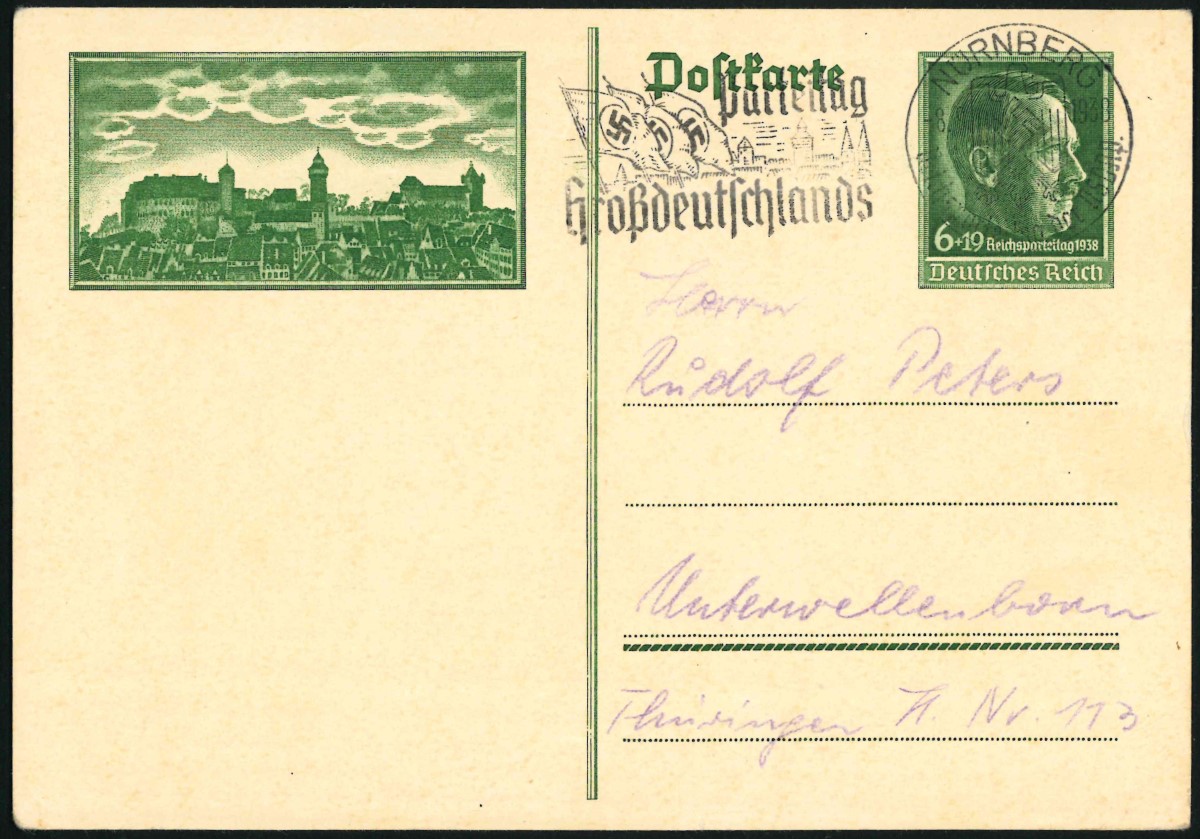 Postkarte
Parteitag
Großdeutschlands
NÜRNBERG
1938
6+19 Reichsparteitag 1938
Deutsches Reich
Herrn
Rudolf Peters
Unterwellenborn
Thüringen H. Nr. 113